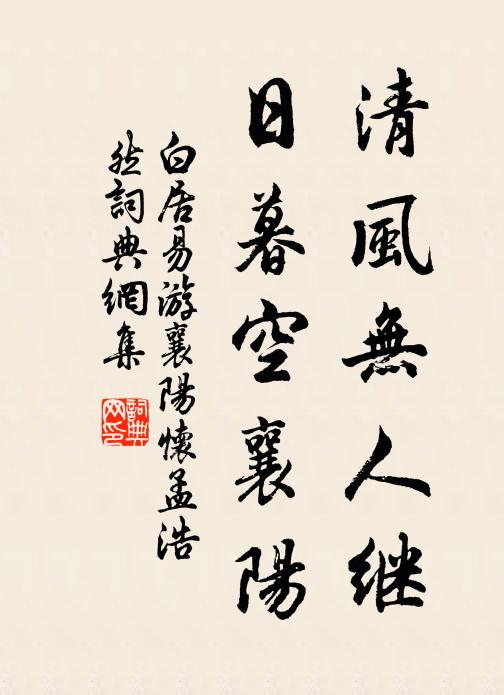 清風無人继
日暮空襄陽
白居易游襄陽懷孟浩
然詞典網集
詞典
网印